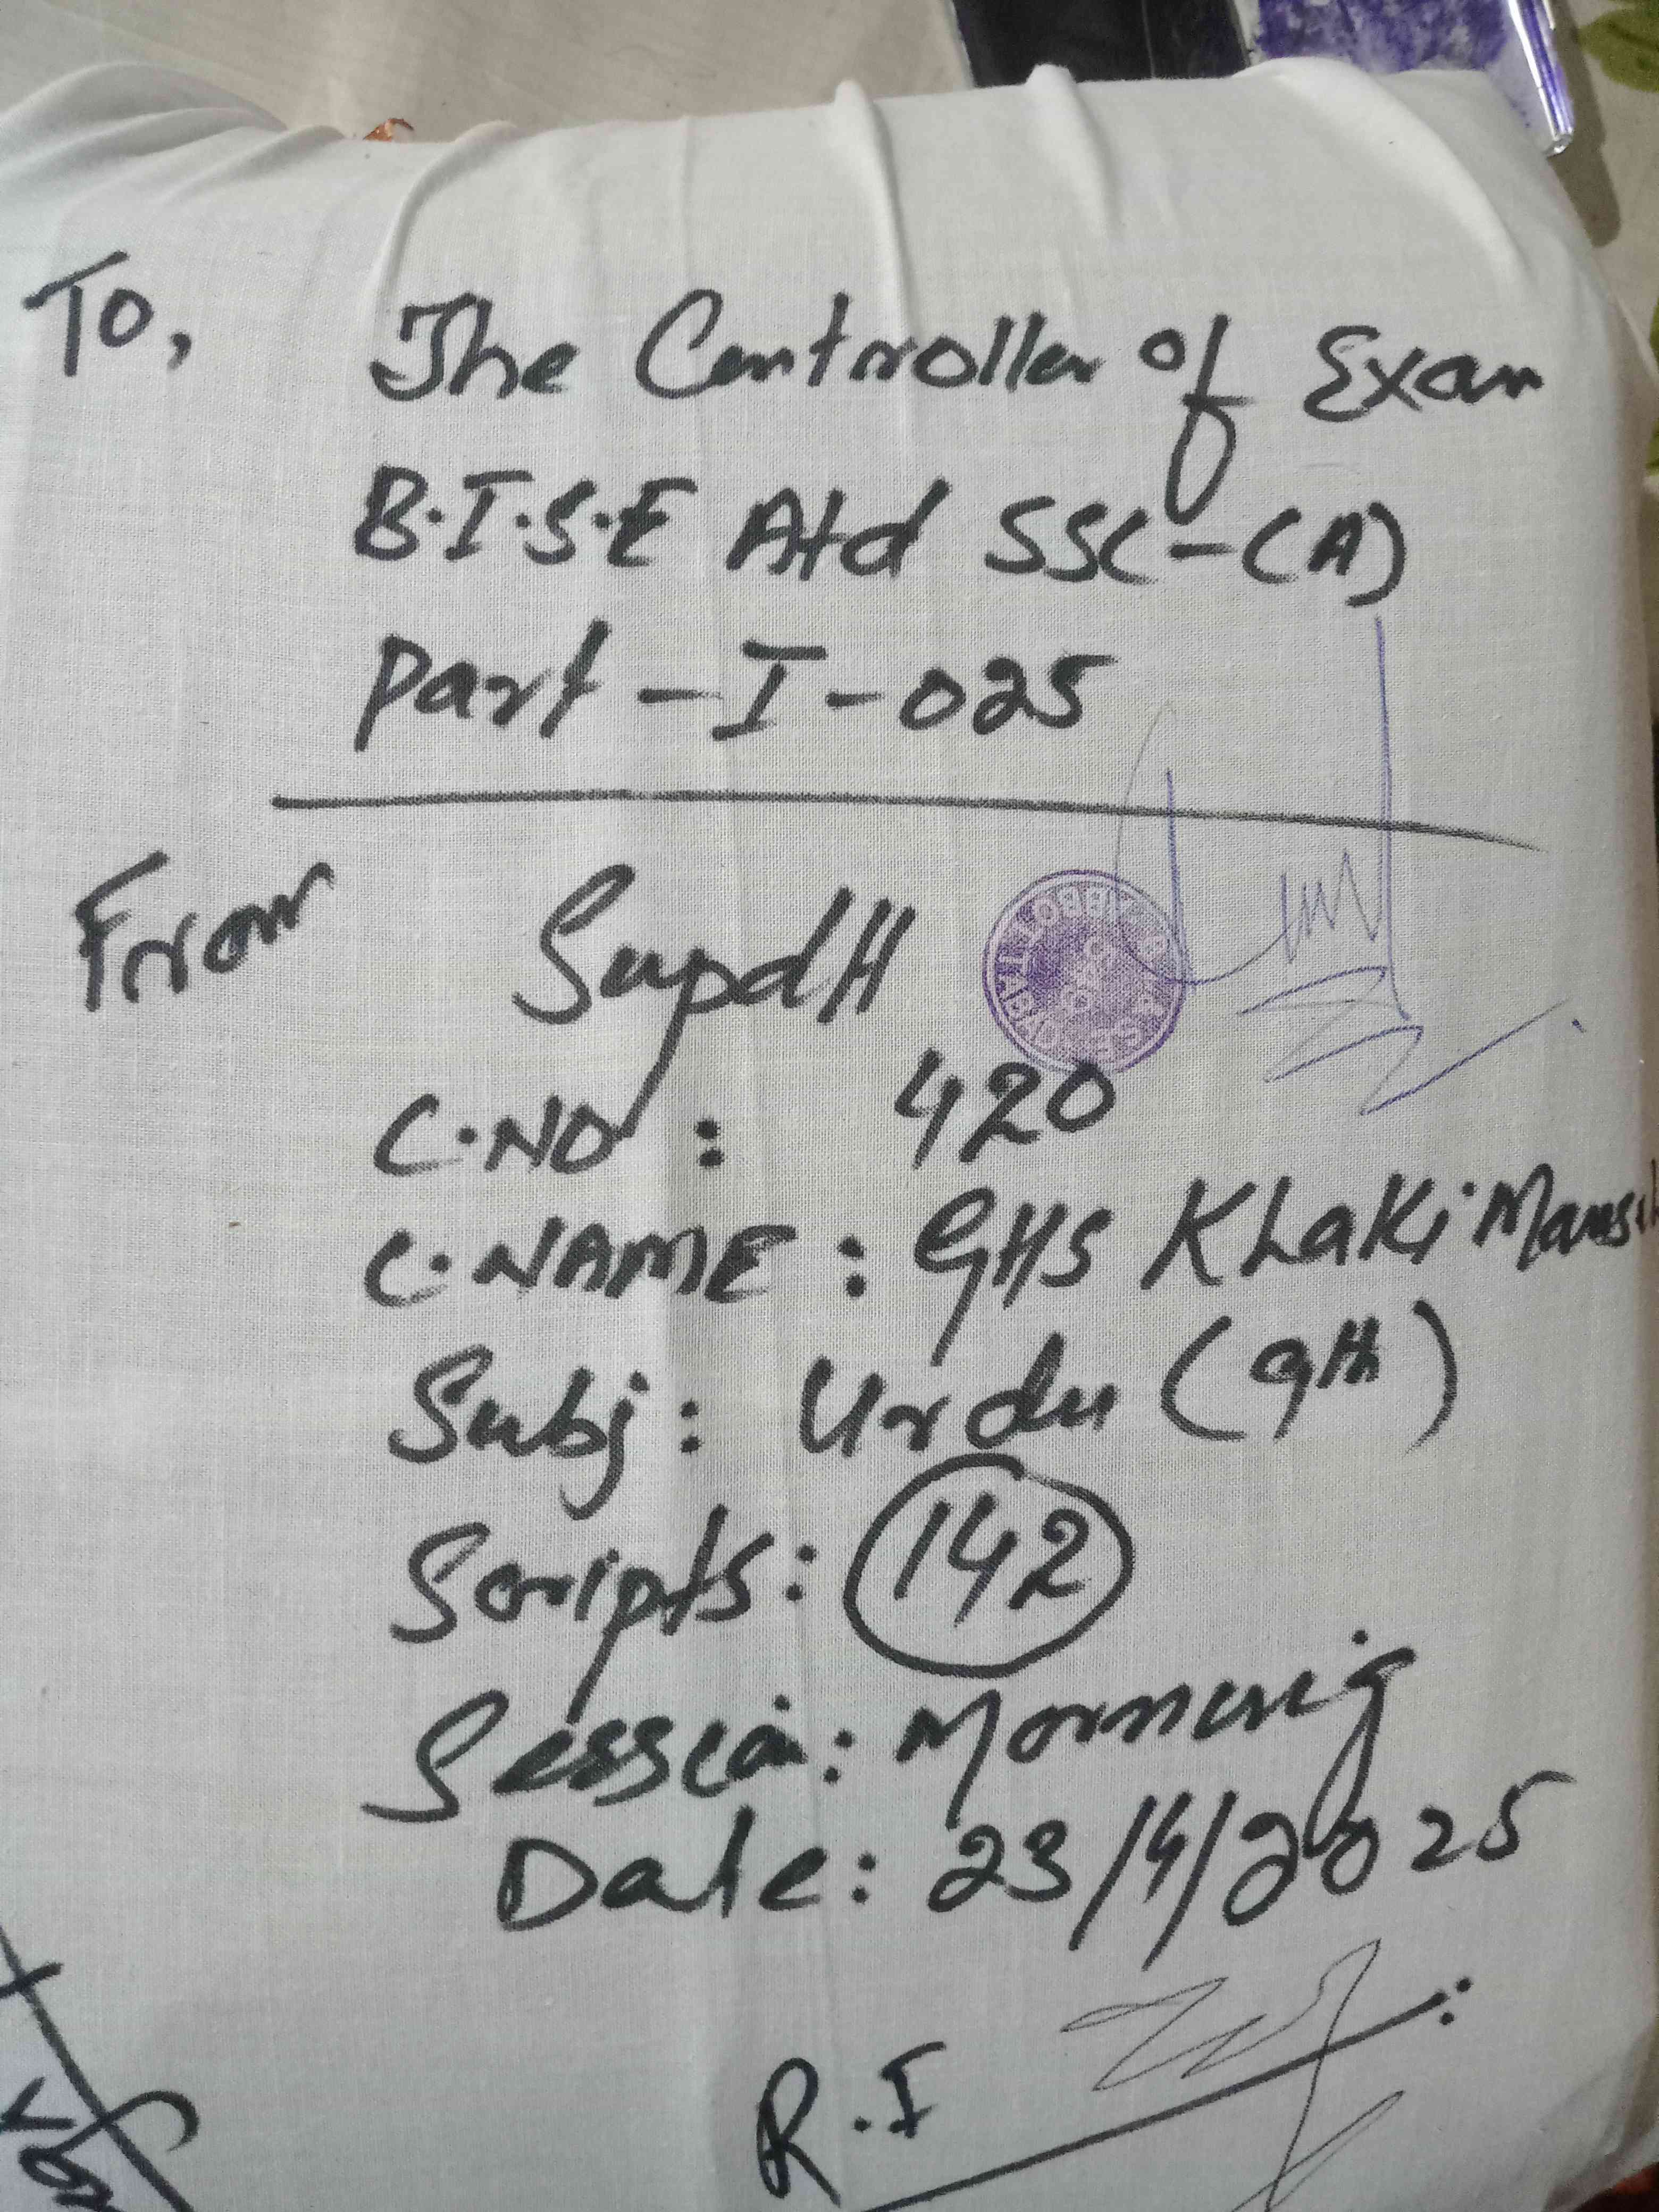 To,
The Controller of Exam
B.I.S.E Atd SSC-(A)
Part-I-025
From
SupdH
C.NO: 420
C.NAME: GHS Khaki
Subj: Urdu (9th)
Scripts: 142
Session: Morning
Date: 23/4/2025
R.I